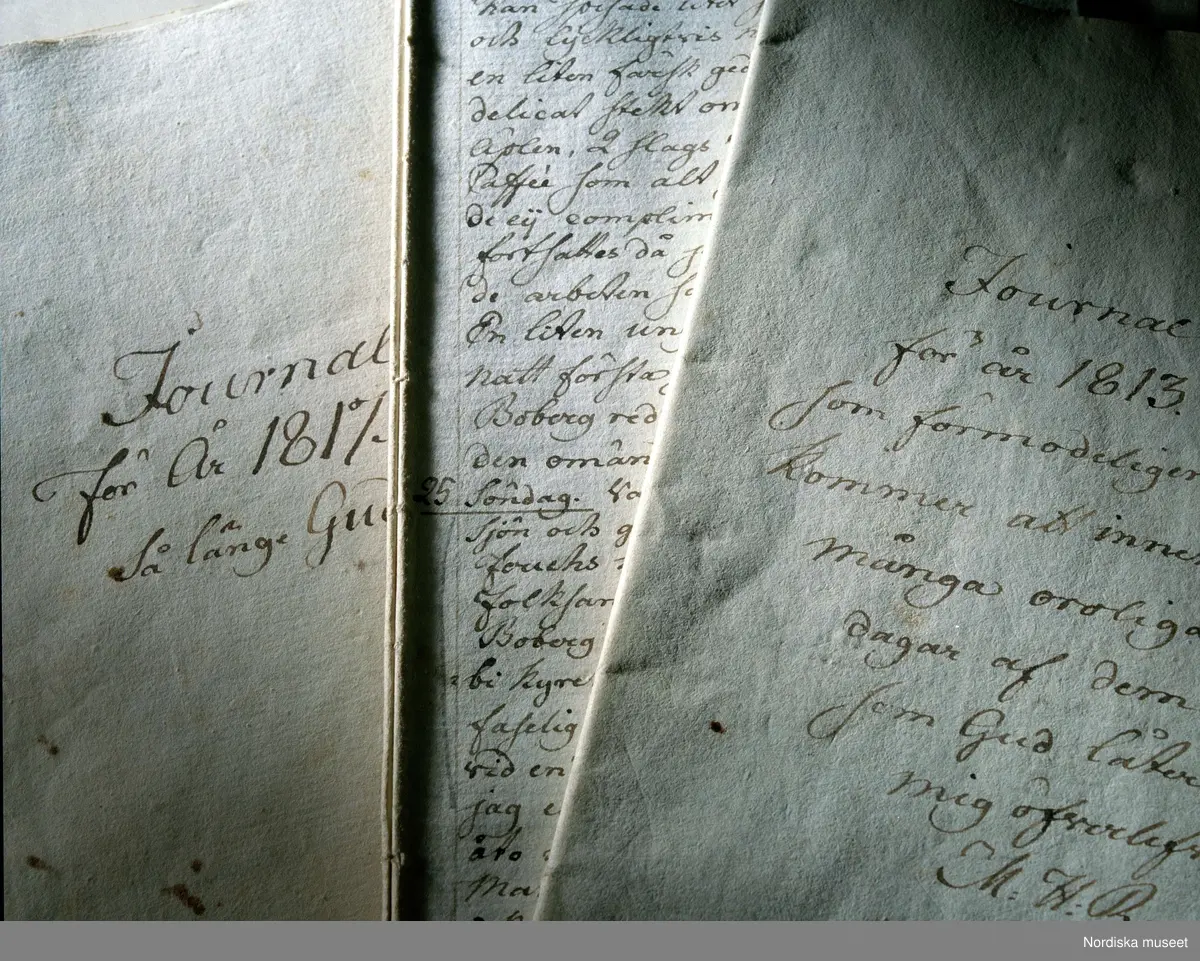 Journal
för År 1817.
så länge Gud
han
och lyckligtvis
en liten färsk
delicat stekt
Äplen, 2 slags
Caffée som alt
de eij complim
fortsattes då
de arbeten
En liten un
natt första
Boberg red
den omän
25 Söndag. Va
sjön och g
fouchs
folksam
Boberg
bi kyre
faselig
vid en
jag
åto
Ma
Journal
för år 1813.
som förmodeligen
kommer att inne
många oroliga
dagar af dem
som Gud låter
mig öfverlef
M: H: R
Nordiska museet